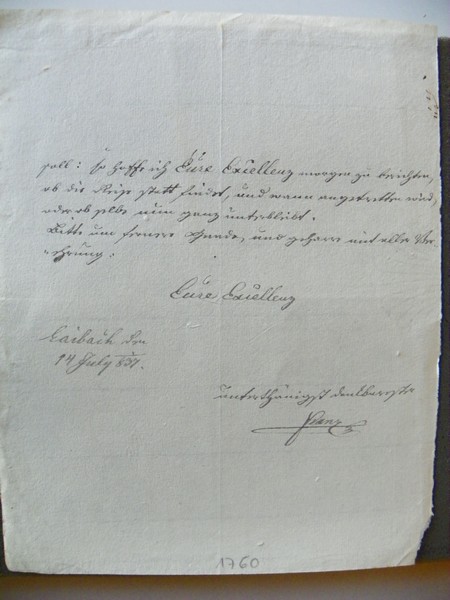 soll: so hoffe ich Eure Excellenz morgen zu berichten,
ob die Reise statt findet, und wann angetretten wird,
oder ob selbe nun ganz unterbleibt.
Bitte um fernere Gnade, und geharre mit aller Ver-
ehrung.
Eure Excellenz
Laibach den
14 July 837.
unterthänigst
1760